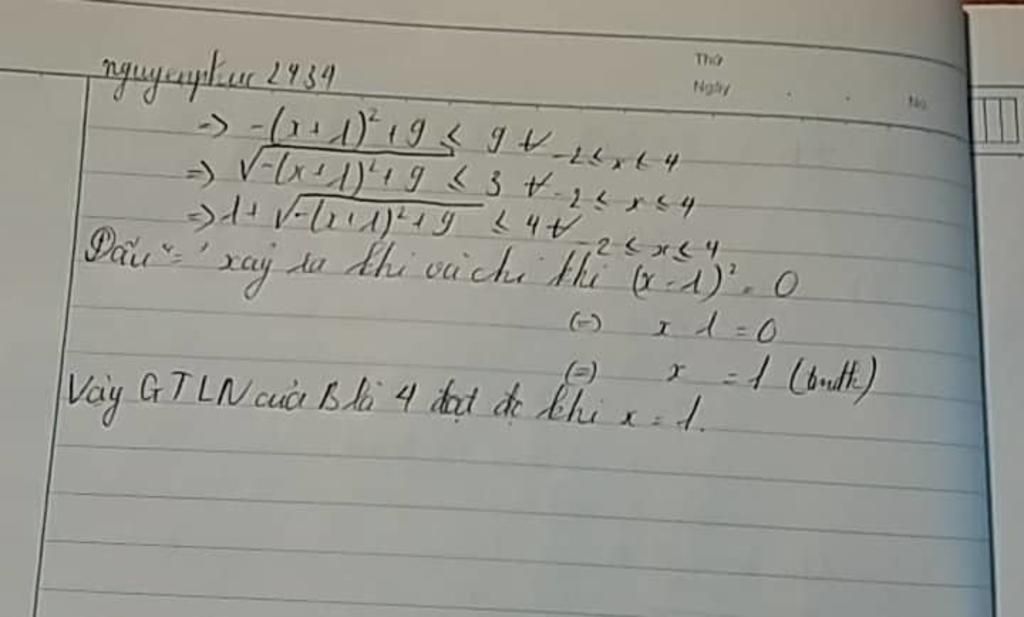 Thứ
Ngày
No
nguyenphuc2439
=> -(x+1)²+9 ≤ 9 ∀ -2≤x≤4
=> √-(x+1)²+9 ≤ 3 ∀ -2≤x≤4
=> 1+√-(x+1)²+9 ≤ 4 ∀ -2≤x≤4
Dấu "=" xảy ra khi và chỉ khi (x-1)²=0
(=) x 1 = 0
(=) x = 1 (tmđk)
Vậy GTLN của B là 4 đạt đc khi x=1.